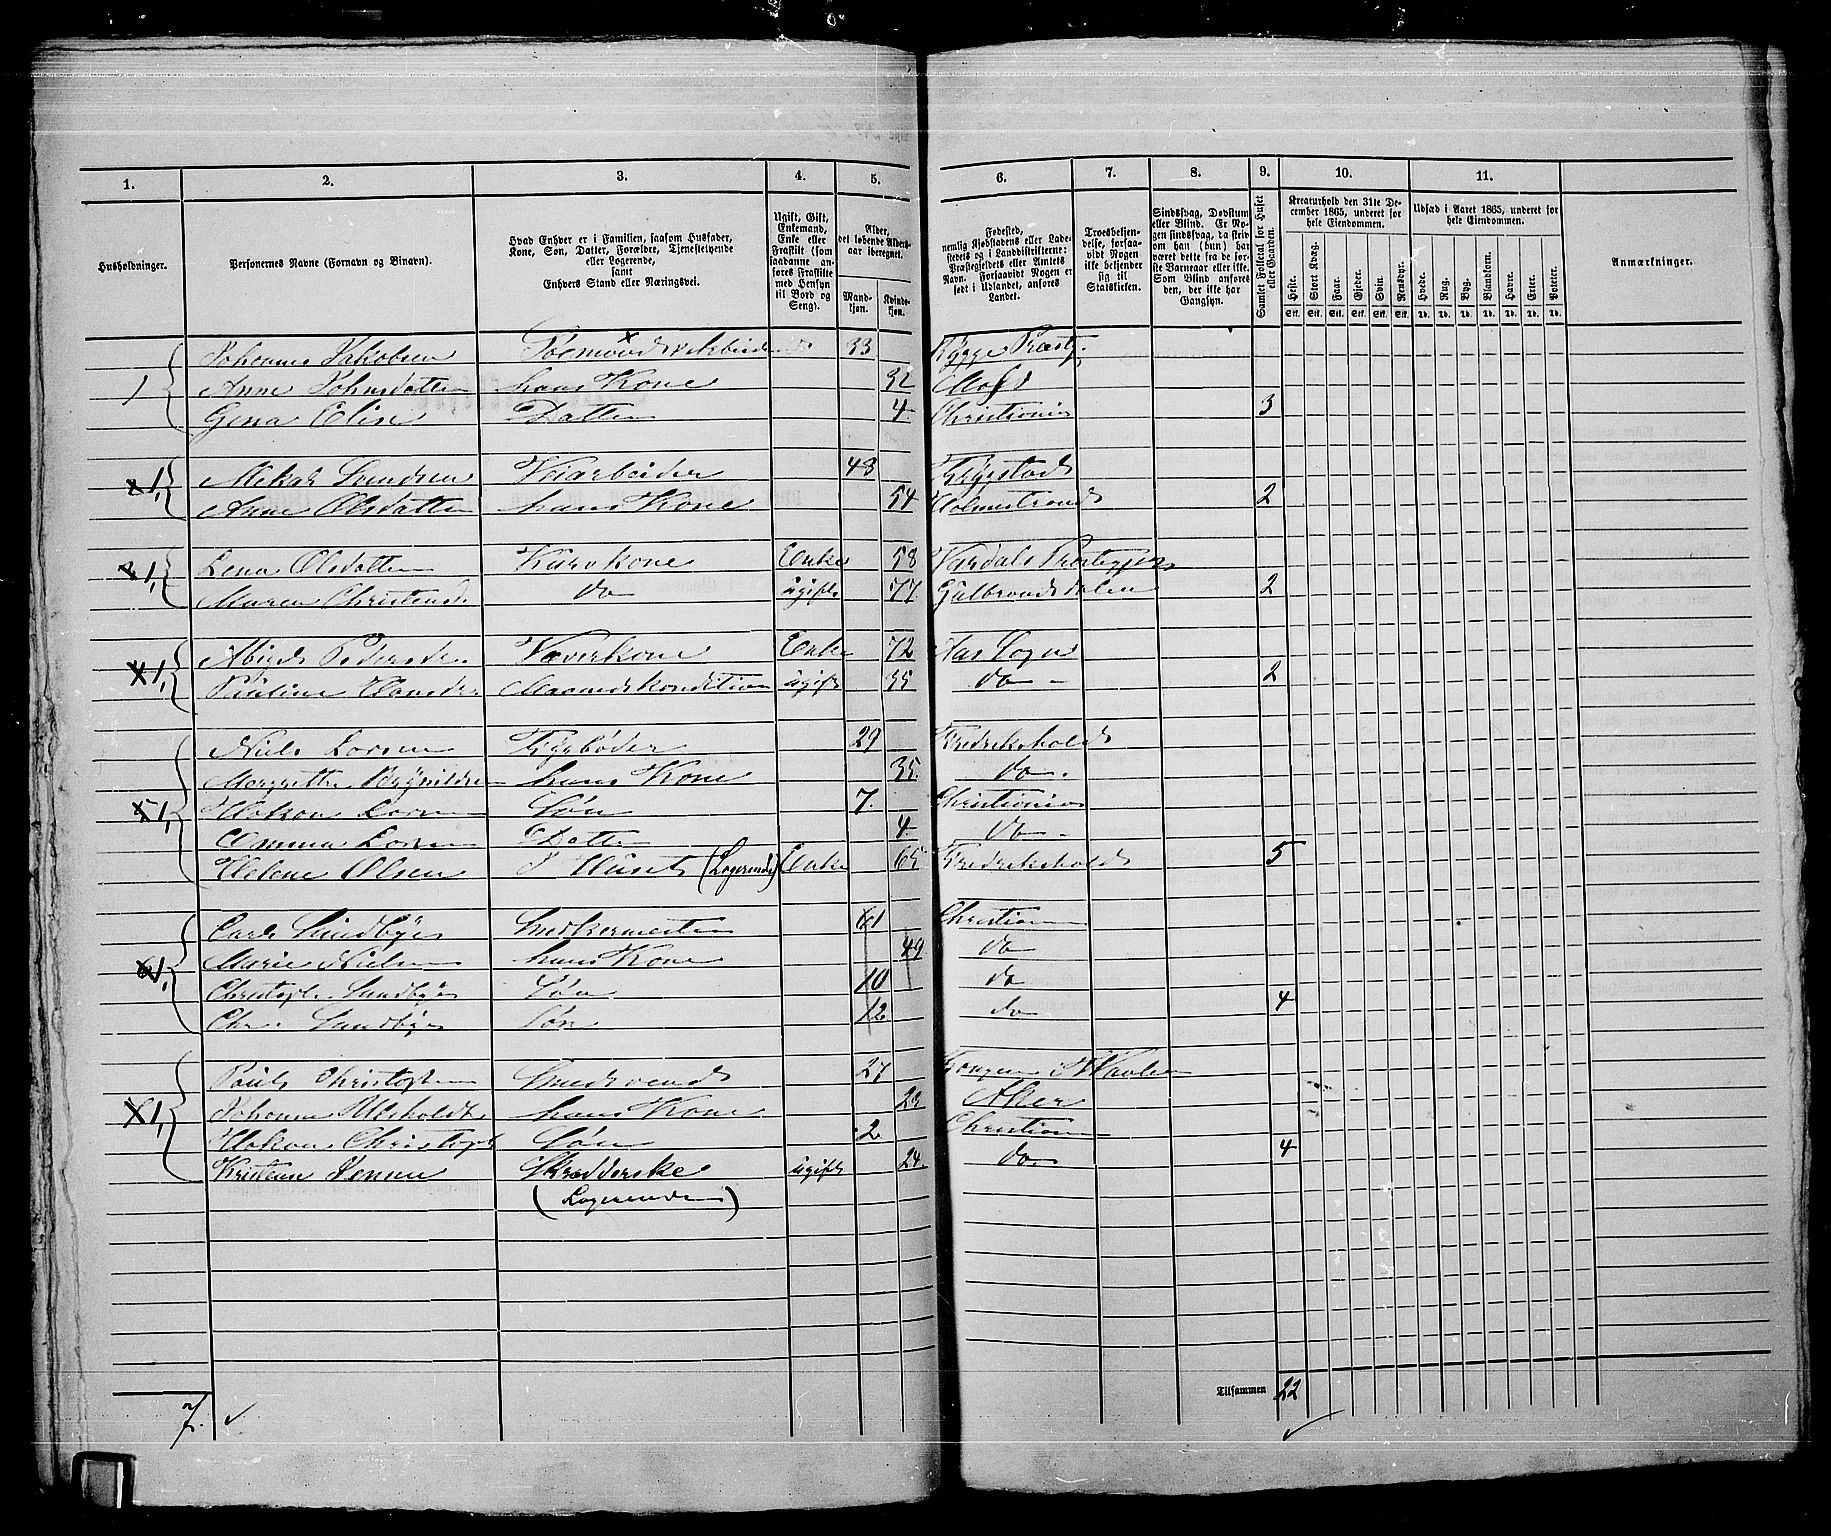 1. 2. 3. 4. 5. 6. 7. 8. 9. 10. 11.
Husholdninger.
Personernes Navne (Fornavn og Binavn).
Hvad Enhver er i Familien, saasom Husfader, Kone, Søn, Datter, Forældre, Tjenestetyende eller Logerende, samt Enhvers Stand eller Næringsvei.
Ugift, Gift, Enkemand, Enke eller Fraskilt (som saadanne anføres Fraskilte med Hensyn til Bord og Seng).
Alder, det løbende Aldersaar iberegnet.
Mandkjøn. Kvindekjøn.
Fødested, nemlig Kjøbstadens eller Ladestedets og i Landdistrikterne: Præstegjeldets eller Amtets Navn. Forsaavidt Nogen er født i Udlandet, anføres Landet.
Troesbekjendelse, forsaavidt Nogen ikke bekjender sig til Statskirken.
Sindssvag, Døvstum eller Blind. Er Nogen sindssvag, da skriv om han (hun) har været dette fra de første Barneaar eller ikke. Som Blind anføres den, der ikke har Gangsyn.
Samlet Folketal for Huset eller Gaarden.
Kreaturhold den 31te December 1865, underet for hele Eiendommen.
Heste. Stort Kvæg. Faar. Gjeder. Svin. Rensdyr.
Udsæd i Aaret 1865, underet for hele Eiendommen.
Hvede. Rug. Byg. Blandkorn. Havre. Erter. Poteter.
Anmærkninger.
1 Johannes Jakobsen 33 Rygge Præstg.
Anne Johnsdatter hans Kone 32 Moss
Gena Elise Datter 4 Christiania 3
1, Svendsen Veiarbeider 48
Anne Olsdatter hans Kone 54 Holmestrand 2
1, Lena Olsdatter Enke 58 Vardals Præstegjeld
Maren Christensd. do ugift 77 Gulbrandsdalen 2
1, Pedersdr. Væverkone Enke 72 Aas Sogn
Pauline ugift 35 do - 2
1, Niels Larsen 29 Fredrikshald
Brynildsen hans Kone 35 do.
Hakon Larsen Søn 7. Christiania
Emma Larsen Datter 4 do -
Helene Olsen I Huset (Logerende) Enke 65 Fredrikshald 5
1, Carl Sundbye Snedkermester 61 Christiania
Marie Nielsen hans Kone 49 do
Christoph Sundbye Søn 10 do
Chr. Sundbye Søn 12 do 4
1, Paul Christophersen Smedsvend 27
Johanne hans Kone 29 Aker
Hakon Christoph. Søn 2 Christiania
Kristine Jensen Skrædderske ugift 24 do. 4
(Logerende)
Tilsammen 22
7.